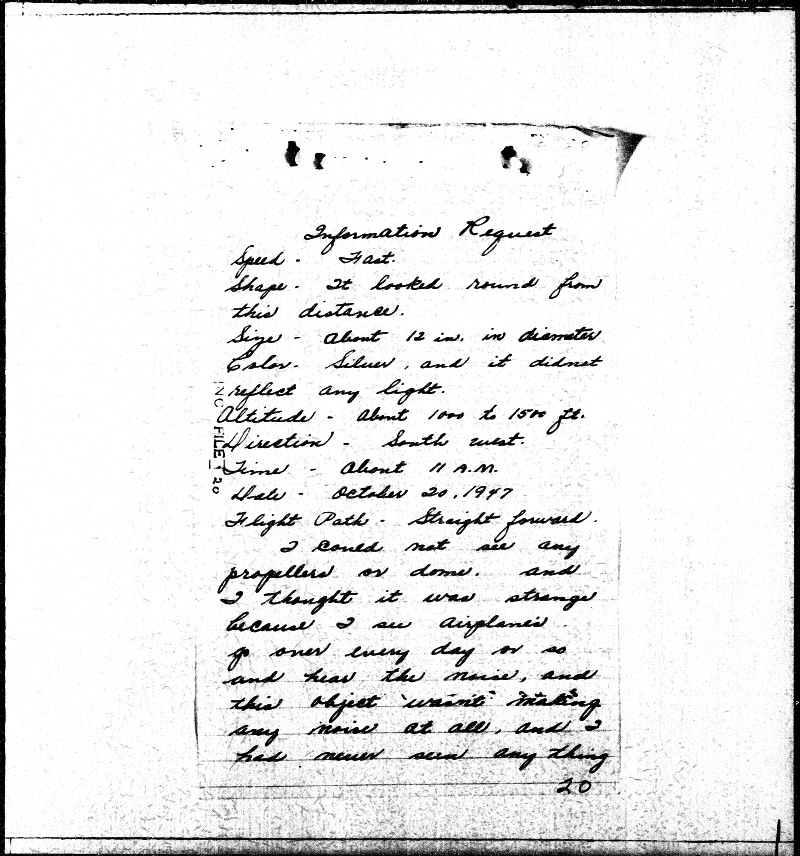 Information Request
Speed - Fast.
Shape - It looked round from
this distance.
Size - About 12 in. in diameter
Color - Silver, and it didnot
reflect any light.
Altitude - About 1000 to 1500 ft.
Direction - South west.
Time - About 11 A.M.
Date - October 20, 1947
Flight Path - Straight forward.
I could not see any
propellers or dome. and
I thought it was strange
because I see airplanes
go over every day or so
and hear the noise, and
this object wasn't making
any noise at all, and I
had never seen any thing
20
FILE 20